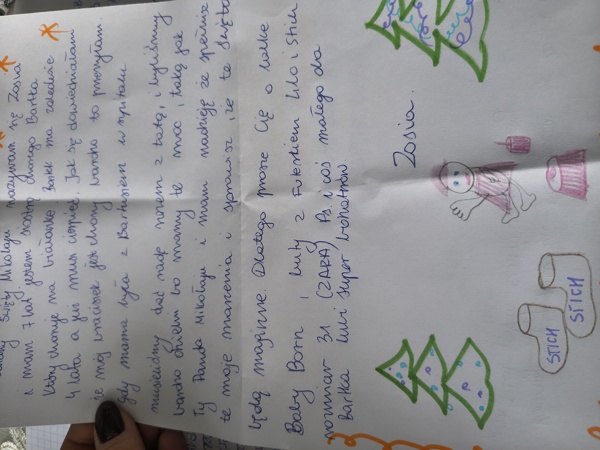 Święty Mikołaju nazywam się Zosia
i mam 7 lat jestem siostrą chorego Bartka
który choruje na białaczkę Bartek ma zaledwie
4 lata a już musi cierpieć. Jak się dowiedziałam
że mój braciszek jest chory bardzo to przeżyłam.
gdy mama była z Bartusiem w szpitalu
musieliśmy dać radę razem z tatą, i byliśmy
bardzo dzielni bo mamy tę moc, taką jak
Ty Panie Mikołaju i mam nadzieję że spełnisz
te moje marzenia i sprawisz, że te święta
będą magiczne. Dlatego proszę Cię o lalkę
Baby Born i buty z futerkiem Lilo i Stich
rozmiar 31 (ZARA) Ps i coś małego dla
Bartka lubi super bohaterów
Zosia.
STICH
STICH